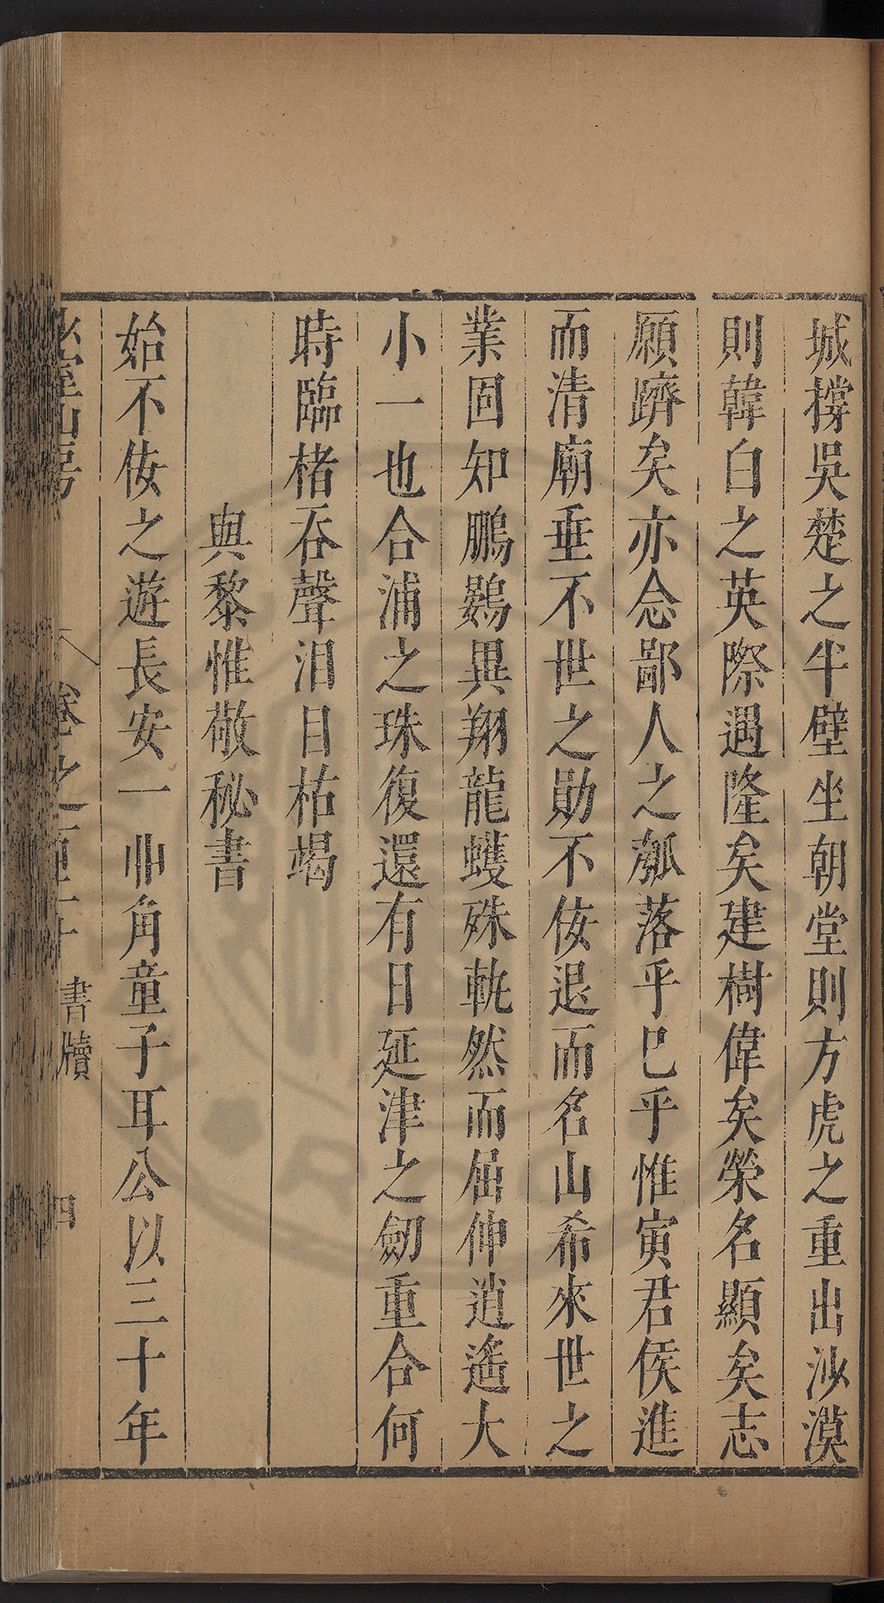 城撐吳楚之半壁坐朝堂則方虎之重出沙漠
則韓白之英際遇隆矣建樹偉矣榮名顯矣志
願躋矣亦念鄙人之瓠落乎巳乎惟寅君侯進
而清廟垂不世之勛不佞退而名山希來世之
業固知鵬鷃異翔龍蠖殊軌然而屈伸逍遙大
小一也合浦之珠復還有日延津之劒重合何
時臨楮吞聲泪目枯竭
與黎惟敬秘書
始不佞之遊長安一丱角童子耳公以三十年
山房
卷之百二十 書牘 四